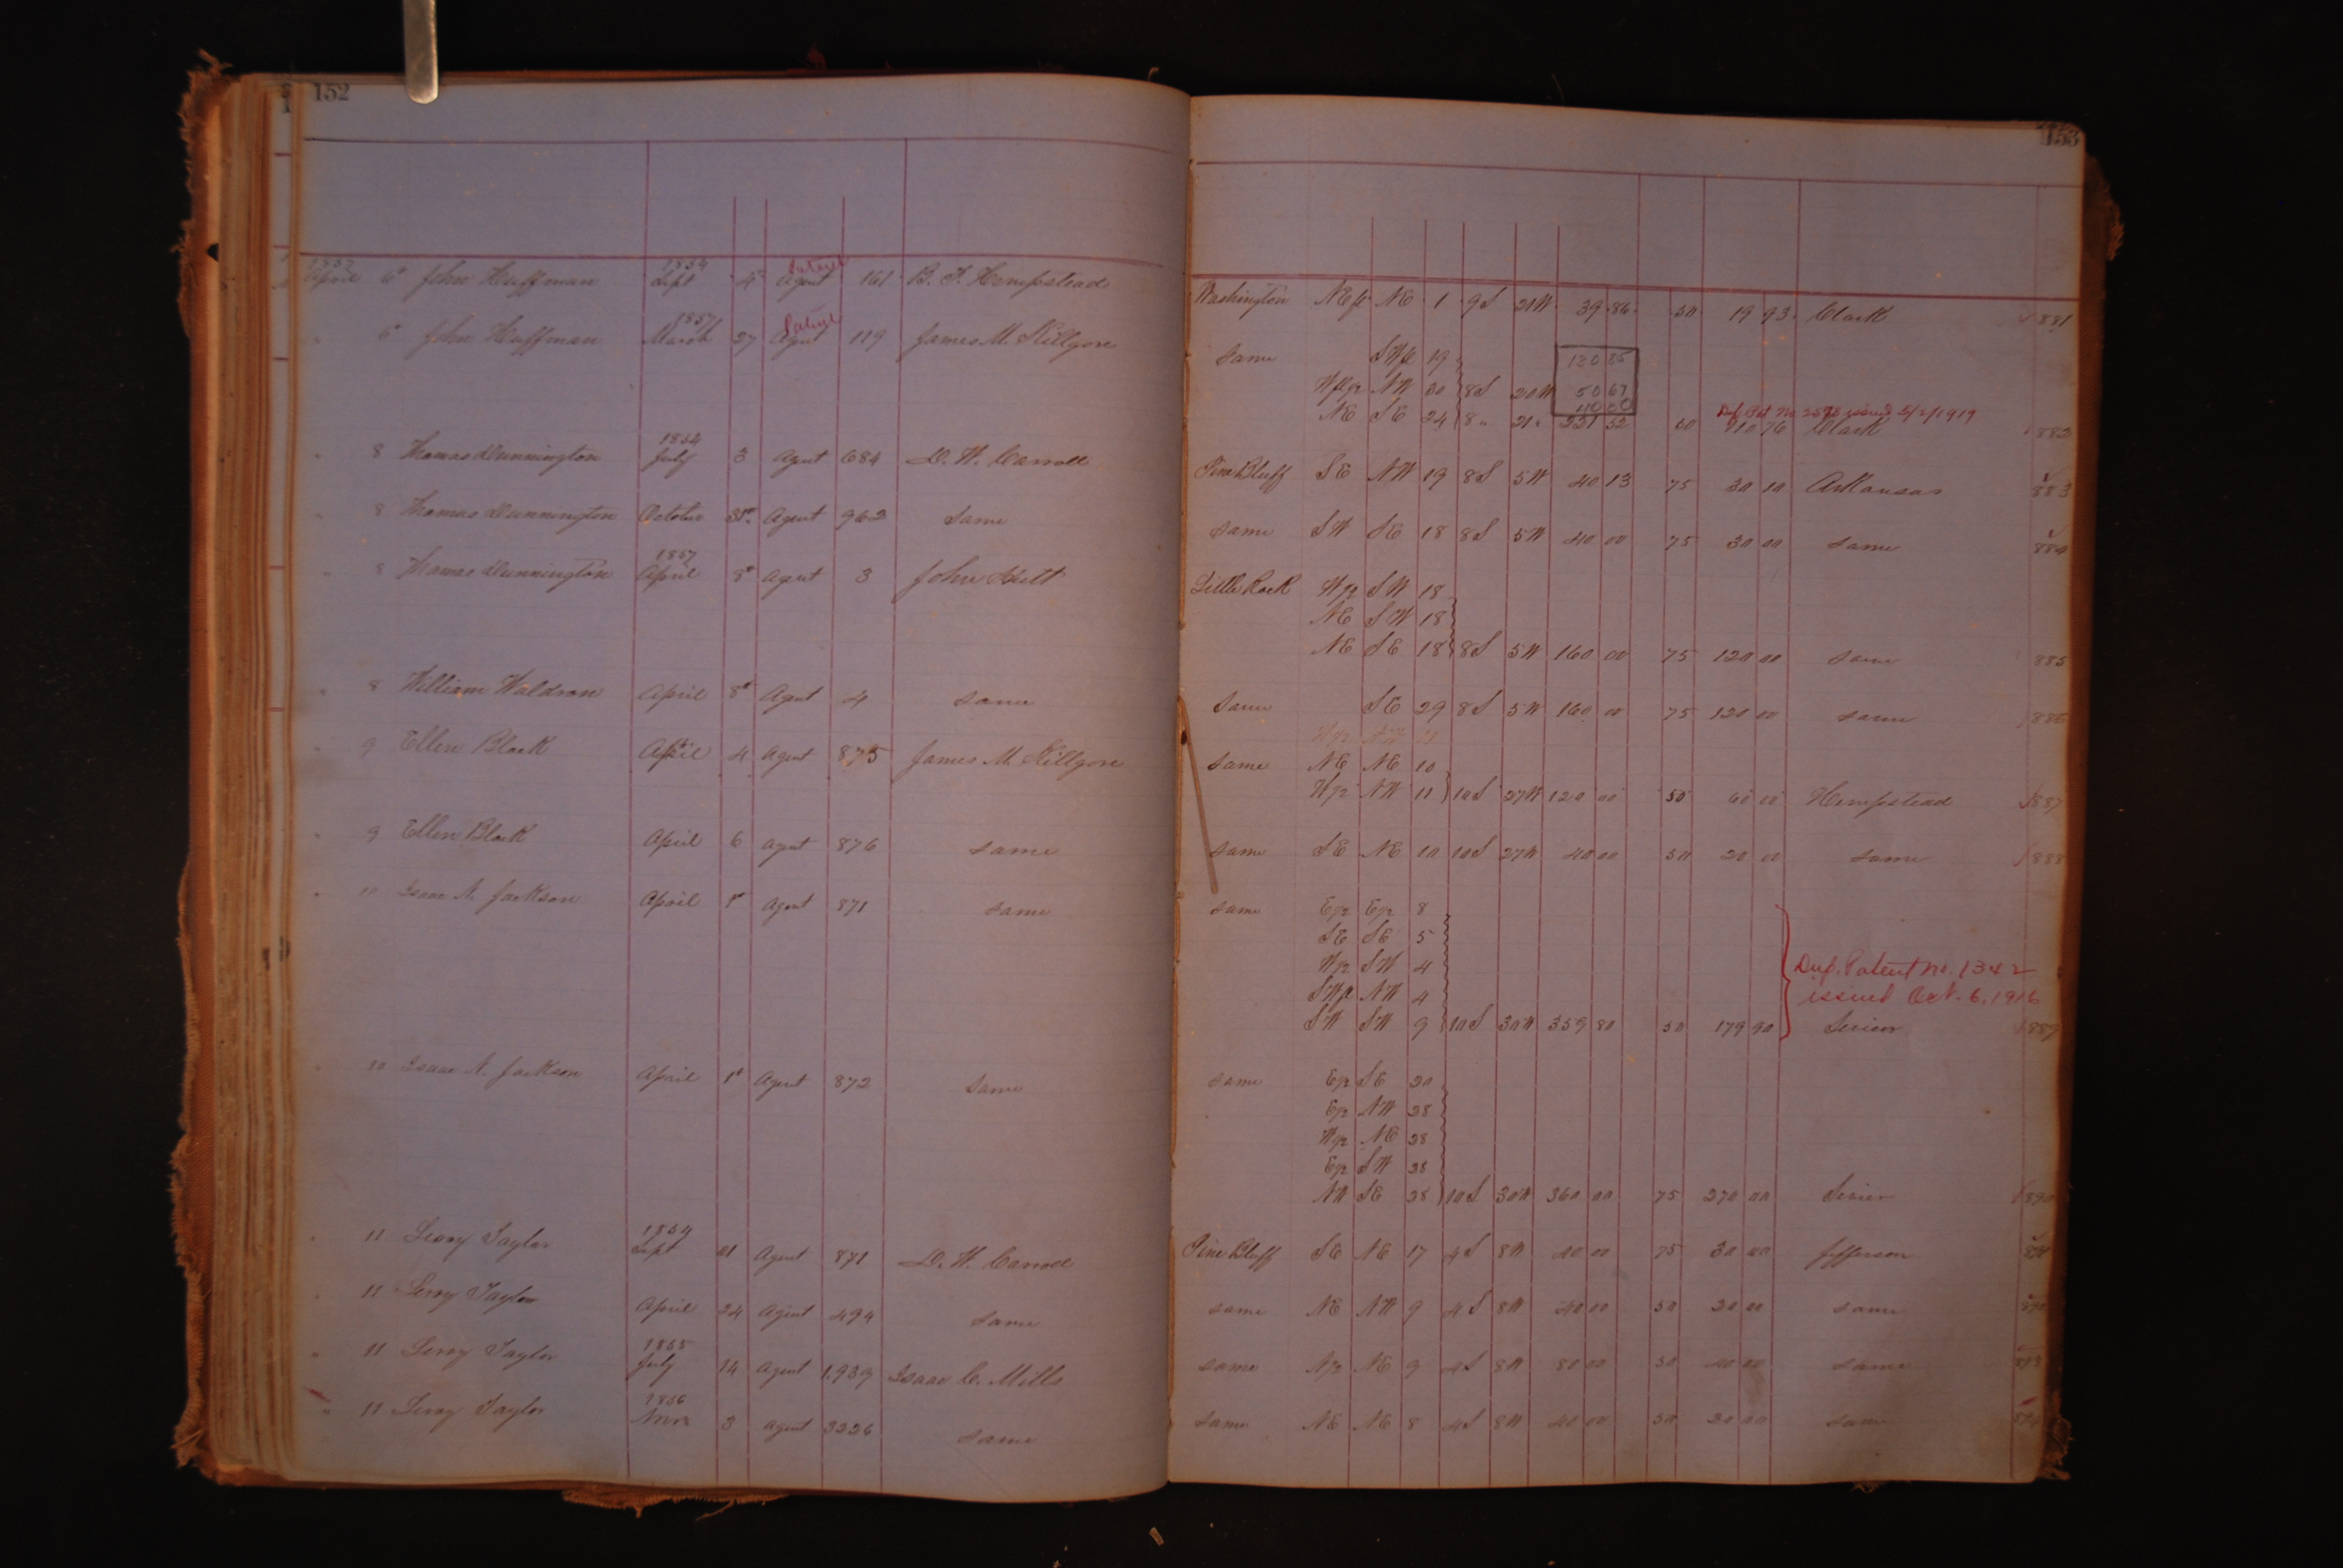 152
153
1857 1854 Patent
April 6" John Huffman Sept 4" Agent 161 B. F. Hempstead Washington NE fr NE 1 9S 21W 39 86 50 19 93 Clark 881
1857 Patent
" 6" John Huffman March 27 Agent 119 James M. Killgore same SW fr 19 120 85
W½ NW 30 8S 20W 50 67
40 00
Dup Pat No 2578 issued 5/2/1919
NE SE 24 8 " 21 " 221 52 50 110 76 Clark 882
1854
" 8 Thomas Dunnington July 3 Agent 684 D. W. Carroll Pine Bluff SE NW 19 8S 5W 40 13 75 30 10 Arkansas 883
" 8 Thomas Dunnington October 31st Agent 962 same same SW SE 18 8S 5W 40 00 75 30 00 same 884
1857
" 8 Thomas Dunnington April 8" Agent 3 John Hutt Little Rock W½ SW 18
NE SW 18
NE SE 18 8S 5W 160 00 75 120 00 same 885
" 8 William Waldron April 8" Agent 4 same same SE 29 8S 5W 160 00 75 120 00 same 886
W½ NW 11
" 9 Ellen Block April 4 Agent 875 James M. Killgore same NE NE 10
W½ NW 11 10S 27W 120 00 50 60 00 Hempstead 887
" 9 Ellen Block April 6 Agent 876 same same SE NE 10 10S 27W 40 00 50 20 00 same 888
" 10 Isaac N. Jackson April 1" Agent 871 same same E½ E½ 8
SE SE 5
W½ SW 4
SW fr NW 4
Dup. Patent No. 1342
issued Oct. 6, 1916
SW SW 9 10S 30W 359 80 50 179 90 Sevier 889
" 10 Isaac N. Jackson April 1" Agent 872 same same E½ SE 20
E½ NW 28
W½ NE 28
E½ SW 28
NW SE 28 10S 30W 360 00 75 270 00 Sevier 890
1854
" 11 Leroy Taylor Sept 21 Agent 871 D. W. Carroll Pine Bluff SE NE 17 4S 8W 40 00 75 30 00 Jefferson 891
" 11 Leroy Taylor April 24 Agent 494 same same NE NW 9 4S 8W 40 00 50 20 00 same 892
1855
" 11 Leroy Taylor July 14 Agent 1,939 Isaac C. Mills same N½ NE 9 4S 8W 80 00 50 40 00 same 893
1856
" 11 Leroy Taylor Novr 3 Agent 3226 same same NE NE 8 4S 8W 40 00 50 20 00 same 894